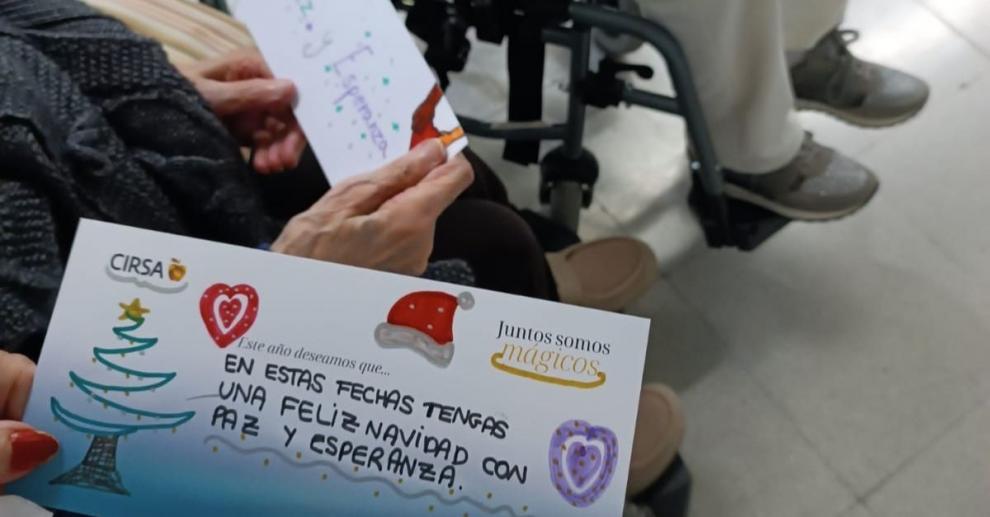 y Esperanza
CIRSA
Juntos somos
mágicos.
Este año deseamos que...
EN ESTAS FECHAS TENGAS
UNA FELIZ NAVIDAD CON
PAZ Y ESPERANZA.